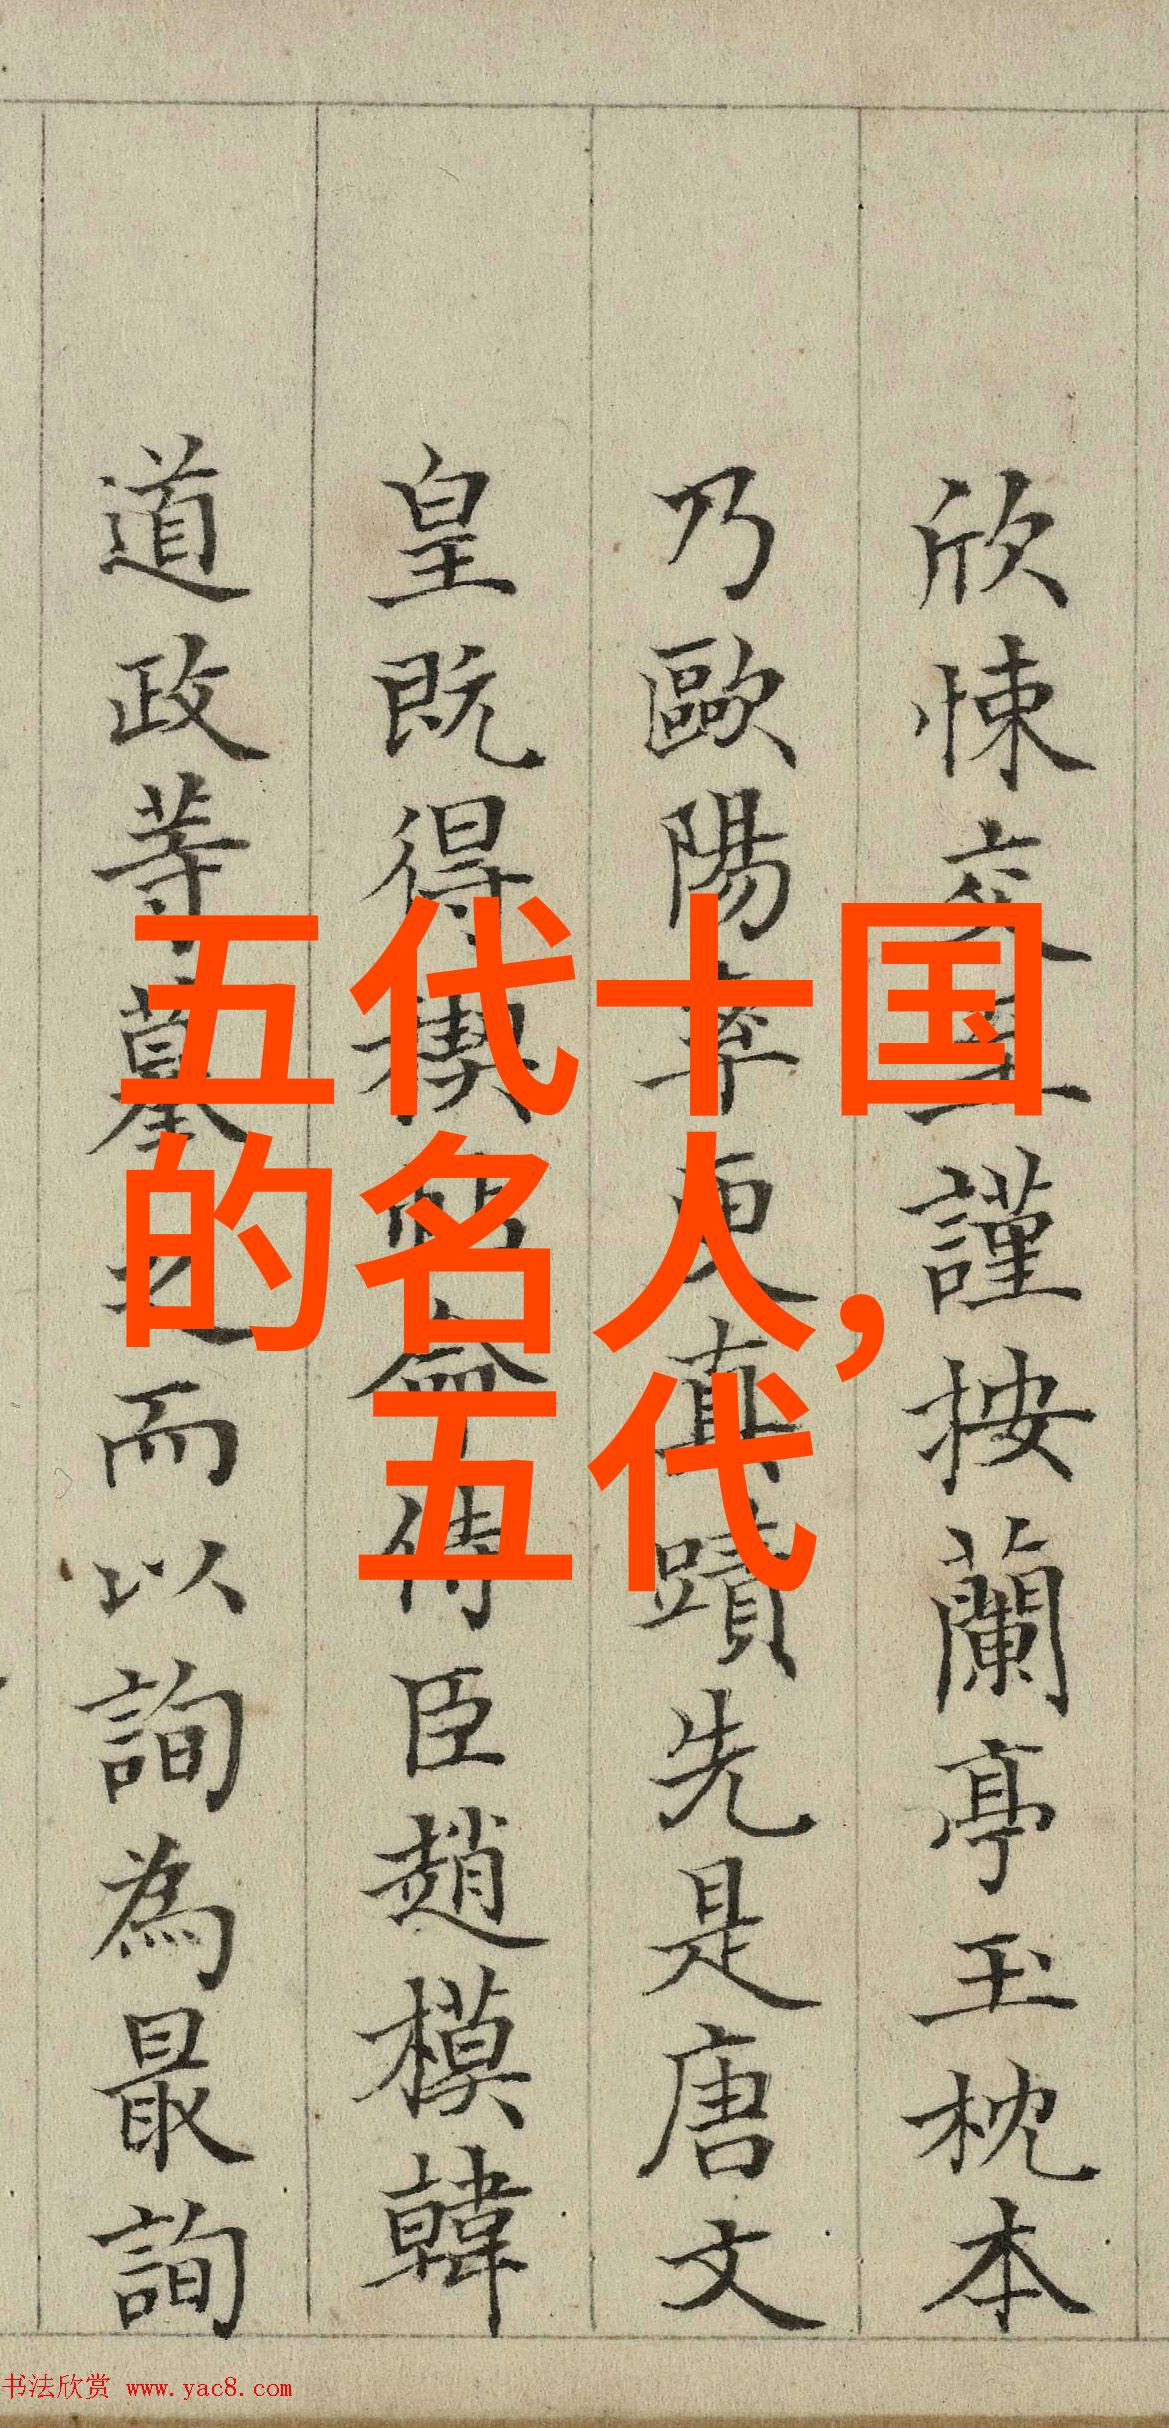 欣悚交至謹按蘭亭玉枕本
乃歐陽率更真蹟先是唐文
皇既得禊帖命侍臣趙模韓
道政等摹之而以詢為最詢
五代十国
的名人,
五代
书法欣赏 www.yac8.com